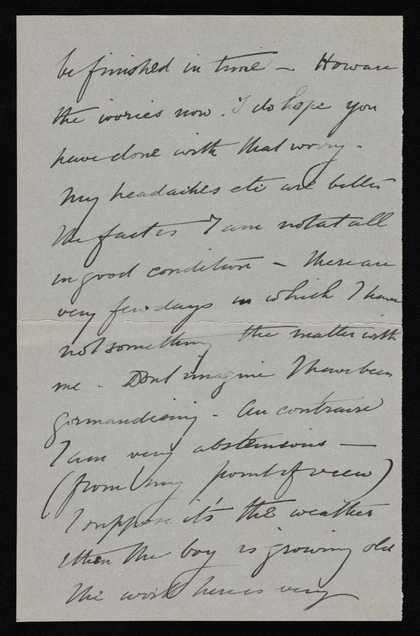 be finished in time – How are
the ivories now. I do hope you
have done with that worry.
My headaches etc are better
the fact is I am not at all
in good condition – there are
very few days in which I have
not something the matter with
me. Dont imagine I have been
gormandising. Au contraire
I am very abstemious –
(from my point of view)
I suppose it's the weather
then the boy is growing old
The work here is very